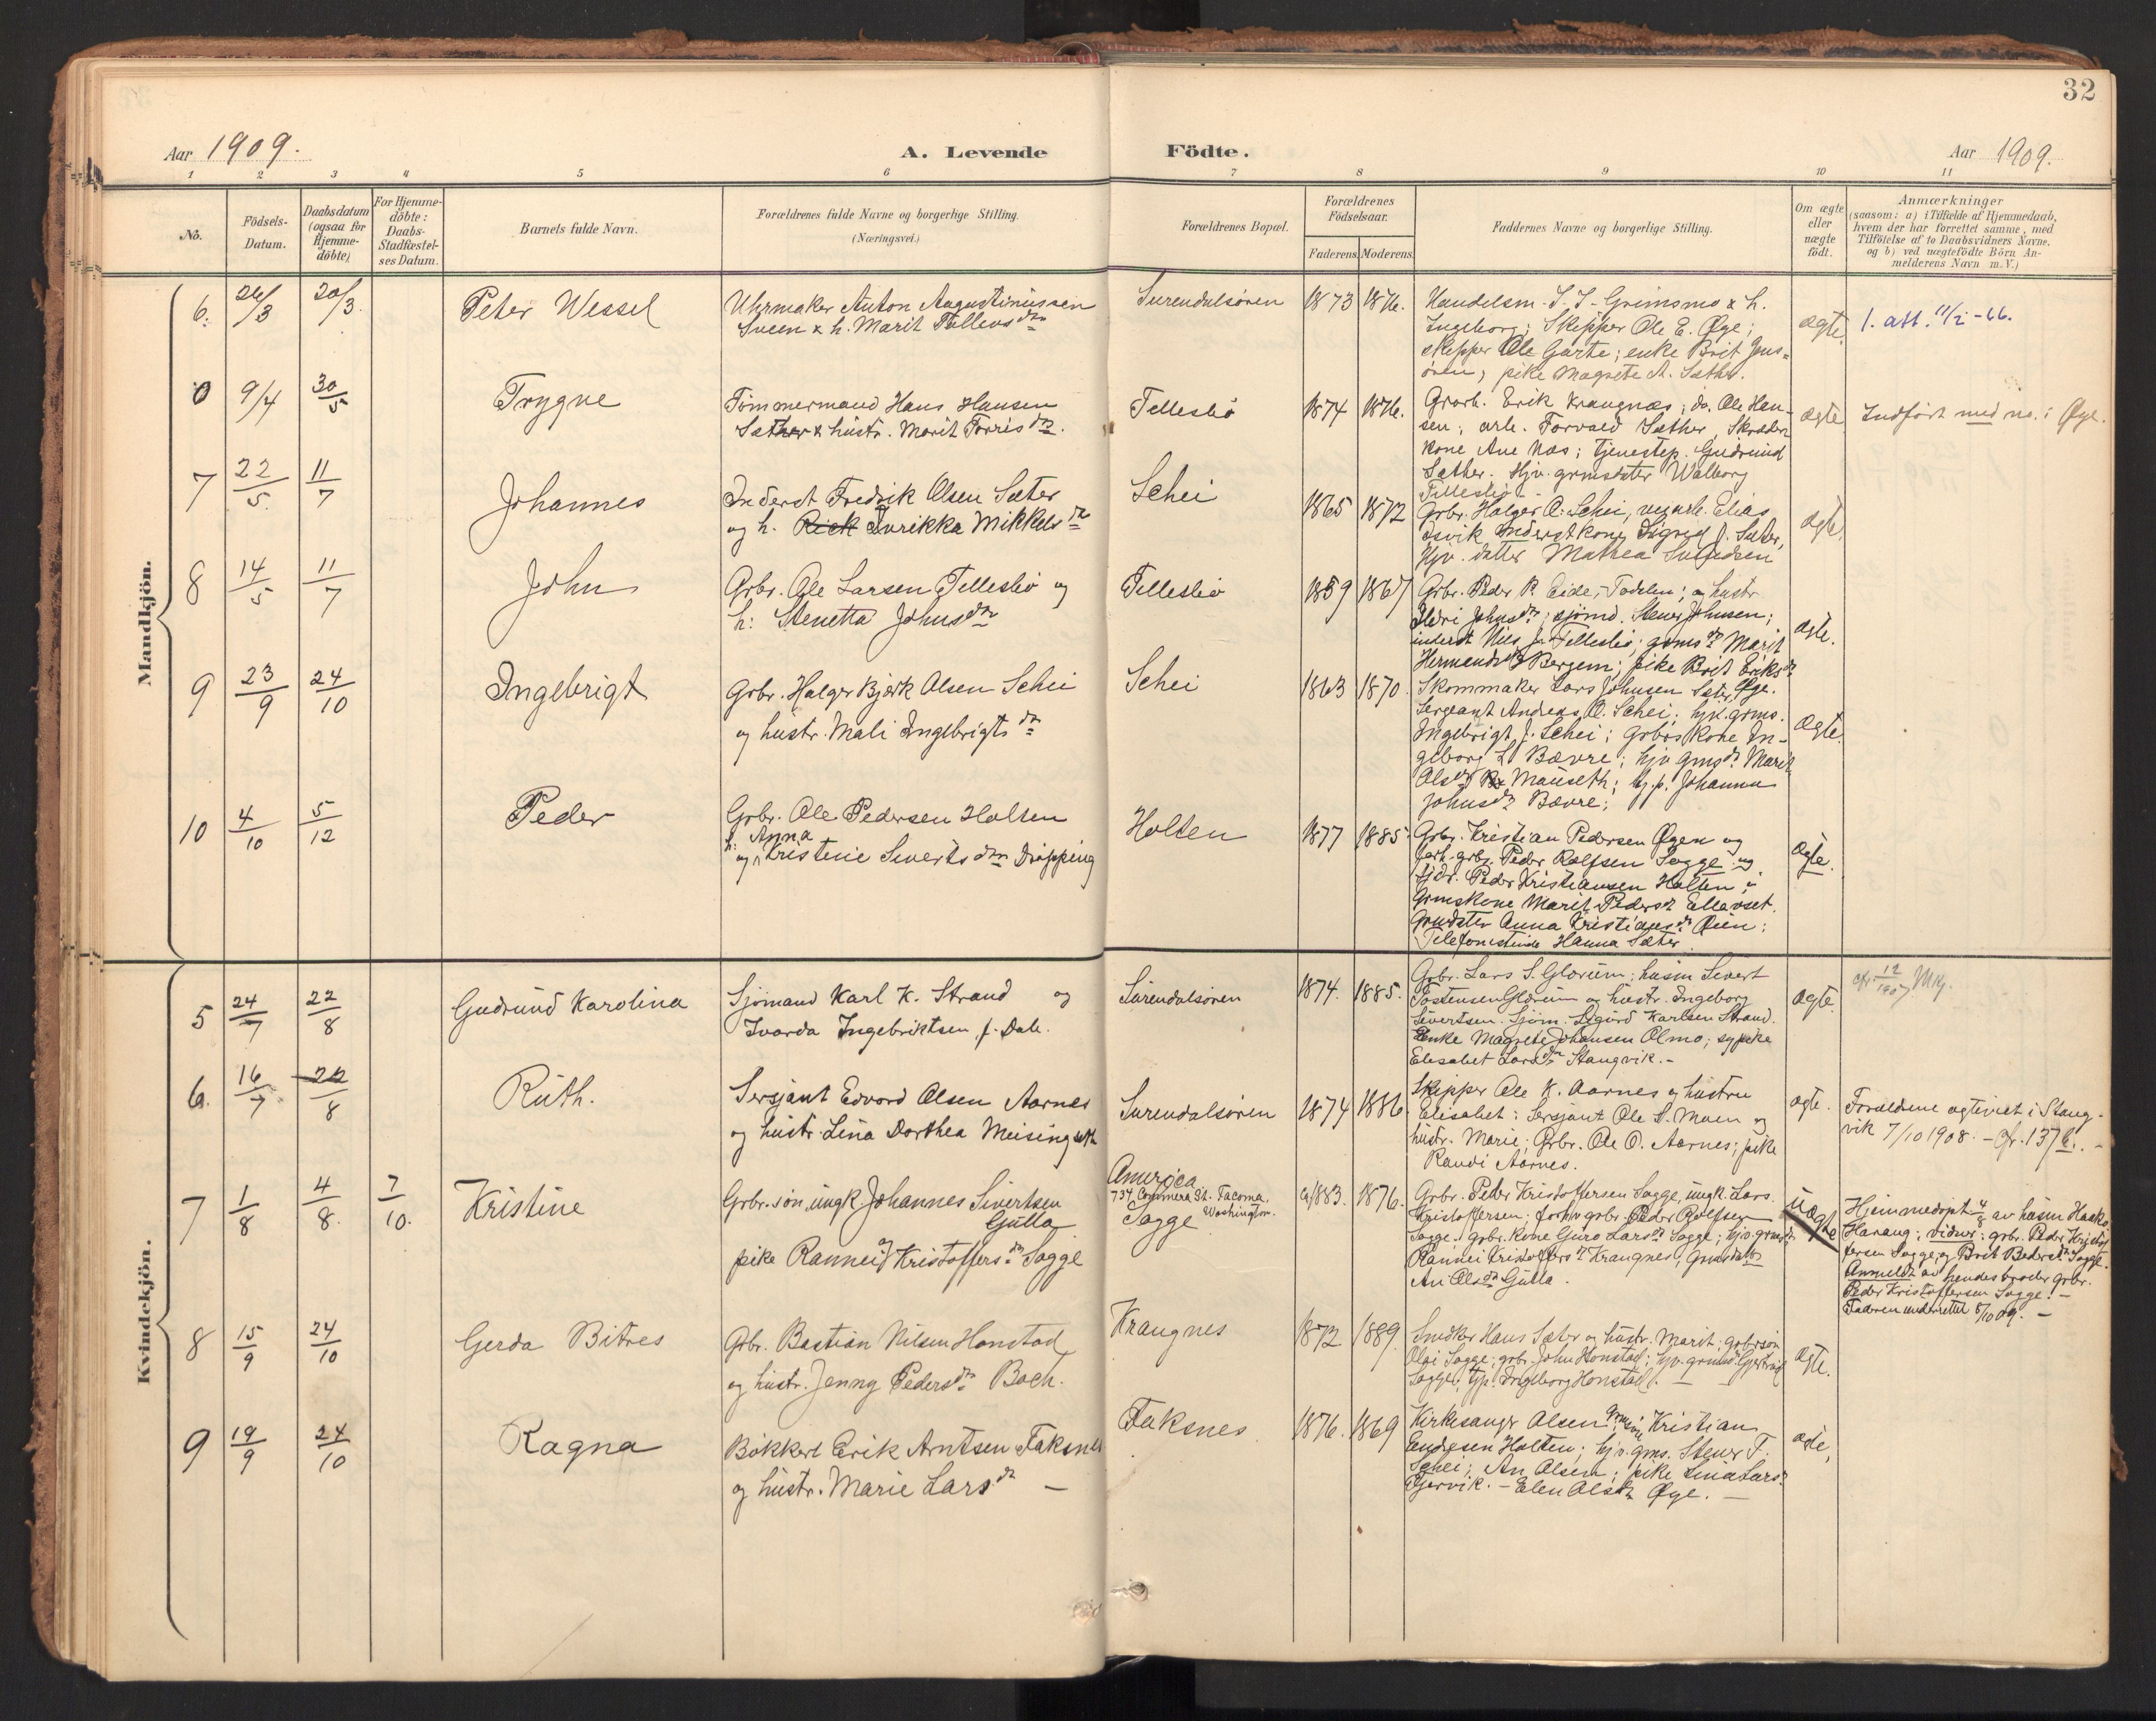 32
Aar 1909.
A. Levende Födte.
Aar 1909.
1 2 3 4 5 6 7 8 9 10 11
No.
Födsels-
Datum.
Daabsdatum
(ogsaa for
Hjemme-
döbte)
For Hjemme-
döbte:
Daabs-
Stadfæstel-
ses Datum.
Barnets fulde Navn.
Forældrenes fulde Navne og borgerlige Stilling.
(Næringsvei.)
Forældrenes Bopæl.
Forældrenes
Födselsaar.
Faderens. Moderens.
Faddernes Navne og borgerlige Stilling.
Om ægte
eller
uægte
födt.
Anmærkninger
(saasom: a) i Tilfælde af Hjemmedaab,
hvem der har forrettet samme, med
Tilföielse af to Daabsvidners Navne,
og b) ved uægtefödte Börn An-
melderens Navn m. V.)
Mandkjön.
6. 26/3 20/3 Peter Wessel
Uhrmaker Anton Augustinussen
Sveen & h. Marit Tellevsdtr
Surendalsören 1873 1876.
Handelsm. J. J. Grimsmo & h.
Ingeborg; Skipper Ole E. Øye;
skipper Ole Garte; enke Brit Jens-
ören; pike Magrete A. Sæther.
ægte. 1. att. 11/2 - 66.
0 9/4 30/5 Trygve
Tömmermand Hans Hansen
Sæther & hustr. Marit Torrisdtr.
Tellesbö 1874 1876.
Grarb. Erik Krangnæs; do. Ole Han-
sen; arb. Torvald Sæther, Skrædder
kone Ane Næs; tjenestep. Gudrund
Sæther. Hjv. grmsdatter Walborg
Tellesbö.
ægte Indfört med no. i Øye.
7 22/5 11/7 Johannes
Inderst Fredrik Olsen Sæter
og h. Rick Lvrikka Mikkelsdtr
Schei 1865 1872
Grbr. Holger O. Schei, veiarb. Elias
Isvik Inderstkone Sigrid J. Sæter,
Hjv. datter Mathea Svendsen
ægte.
8 14/5 11/7 John
Grbr. Ole Larsen Tellesbö og
h: Stenetta Johnsdtr
Tellesbö 1859 1867
Grbr. Peder P. Eide, Todalen; og hustr
Ildri Johnsdtr; sjömd. Stener Johnsen;
inderst Nils J. Tellesbö; grmsdtr Marit
Hermundsdtr Bergem; pike Brit Eriksdtr
Øye.
ægte.
9 23/9 24/10 Ingebrigt
Grbr. Holger Bjørk Olsen Schei
og hustr. Mali Ingebrigtsdtr
Schei 1863 1870.
Skommaker Lars Johnsen Sæter,
Sergeant Andreas O. Schei; hjv. grms.
Ingebrigt J. Schei; Grbrs kone In-
geborg L. Bævre; hjv. gmsdtr Marit
Olsdtr Mauseth; tj.p. Johanna
Johnsdtr Bævre;
ægte.
10 4/10 5/12 Peder
Grbr. Ole Pedersen Holten
h: Anna
og Kristine Sivertsdtr Dröpping
Holten 1877 1885
Grbr. Kristian Pedersen Øyen og
forh. grbr. Peder Rolfsen Sogge og
tjdr. Peder Kristiansen Holten;
Grmskone Marit Pedersdtr Ellevset.
Grmdatter Anna Kristiansdtr Øien;
Telefonistinde Hanna Sæter.
ægte.
Kvindekjön.
5 24/7 22/8 Gudrund Karolina
Sjömand Karl K. Strand og
Ivarda Ingebriktsen f. Dale.
Surendalsören 1874. 1885.
Grbr. Lars S. Glærum; husm Sivert
Tostensen Glærum og hustr. Ingeborg
Sivertsen. Sjöm. Sigurd Karlsen Strand.
Enke Magrete Johansen Olmo; sypike
Elisabet Larsdtr Stangvik.-
ægte. cfr. 12/1907 Mkj.
6. 16/7 22/8 Ruth.
Sersjant Edvard Olsen Aarnes
og hustr. Lina Dorthea Meisingseth
Surendalsören 1874 1886
Skipper Ole K. Aarnes og hustru
Elisabet; Sersjant Ole S. Moen og
hustr. Marie; Grbr. Ole O. Aarnes; pike
Randi Aarnes.
ægte. Forældrene ægteviet i Stang-
vik 7/10 1908. - Cfr. 137 b. -
7 1/8 4/8. 7/10. Kristine
Grbr.sön, ungk Johannes Sivertsen
Gulla
og
pike Rannei Kristoffersdtr Sogge
America
734 Commerce St. Tacoma.
Washington.
Sogge
c/1883. 1876.
Grbr. Peder Kristoffersen Sogge, ungk. Lars
Kristoffersen; forhv. grbr. Peder Rolfsen
Sogge. Grbr. Kone Guro Larsdtr Sogge; hjv. grmsdtr
Rannei Kristoffersdtr Krangnes, Grmsdatter
An Olsdtr Gulla.
uægte Hjemmedöpt 4/8 av husm Haako
Harang; vidner: grbr. Peder Kristof
fersen Sogge, og Brit Pedersdtr Sogge.
Anmeldt av hendes broder grbr.
Peder Kristoffersen Sogge. -
Faderen underrettet 8/10 09. -
8 15/9 24/10 Gerda Bitres
Grbr. Bastian Nilsen Honstad
og hustr. Jenny Pedersdtr Boch.
Krangnes 1872 1889.
Snedker Hans Sæter og hustr. Marit; grbrsön
Olai Sogge; grbr. John Honstad; hjv. grmsd. Gjertrud
Sogge; tjp. Ingeborg Honstad. -
ægte.
9 19/9 24/10 Ragna
Bökker Erik Arntsen Faksnes
og hustr. Marie Larsdtr -
Faksnes 1876. 1869
Kirkesanger Olsen, grmssön Kristian
Endresen Holten; hjv. gms. Stener T.
Schei; An Olsen; pike Lina Larsdtr
Gjervik. - Elen Olsdtr Øye. -
ægte,